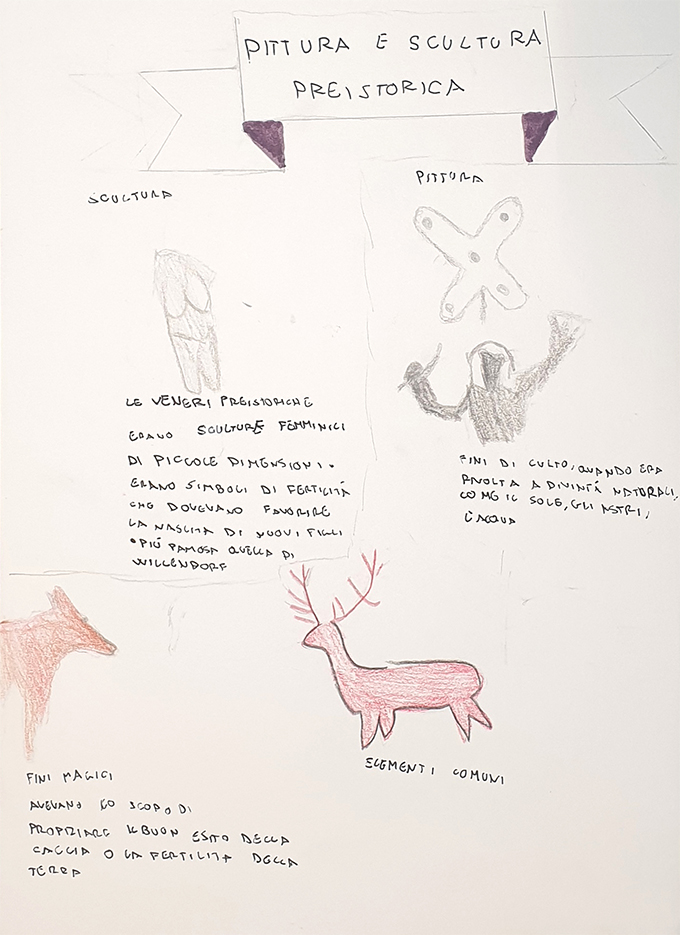 PITTURA E SCULTURA
PREISTORICA
SCULTURA
PITTURA
LE VENERI PREISTORICHE
ERANO SCULTURE FEMMINILI
DI PICCOLE DIMENSIONI.
ERANO SIMBOLI DI FERTILITÀ
CHE DOVEVANO FAVORIRE
LA NASCITA DI NUOVI FIGLI
• PIÙ FAMOSA QUELLA DI
WILLENDORF
FINI DI CULTO, QUANDO ERA
RIVOLTA A DIVINITÀ NATURALI,
COME IL SOLE, GLI ASTRI,
L'ACQUA
ELEMENTI COMUNI
FINI MAGICI
AVEVANO LO SCOPO DI
PROPIZIARE IL BUON ESITO DELLA
CACCIA O LA FERTILITÀ DELLA
TERRA